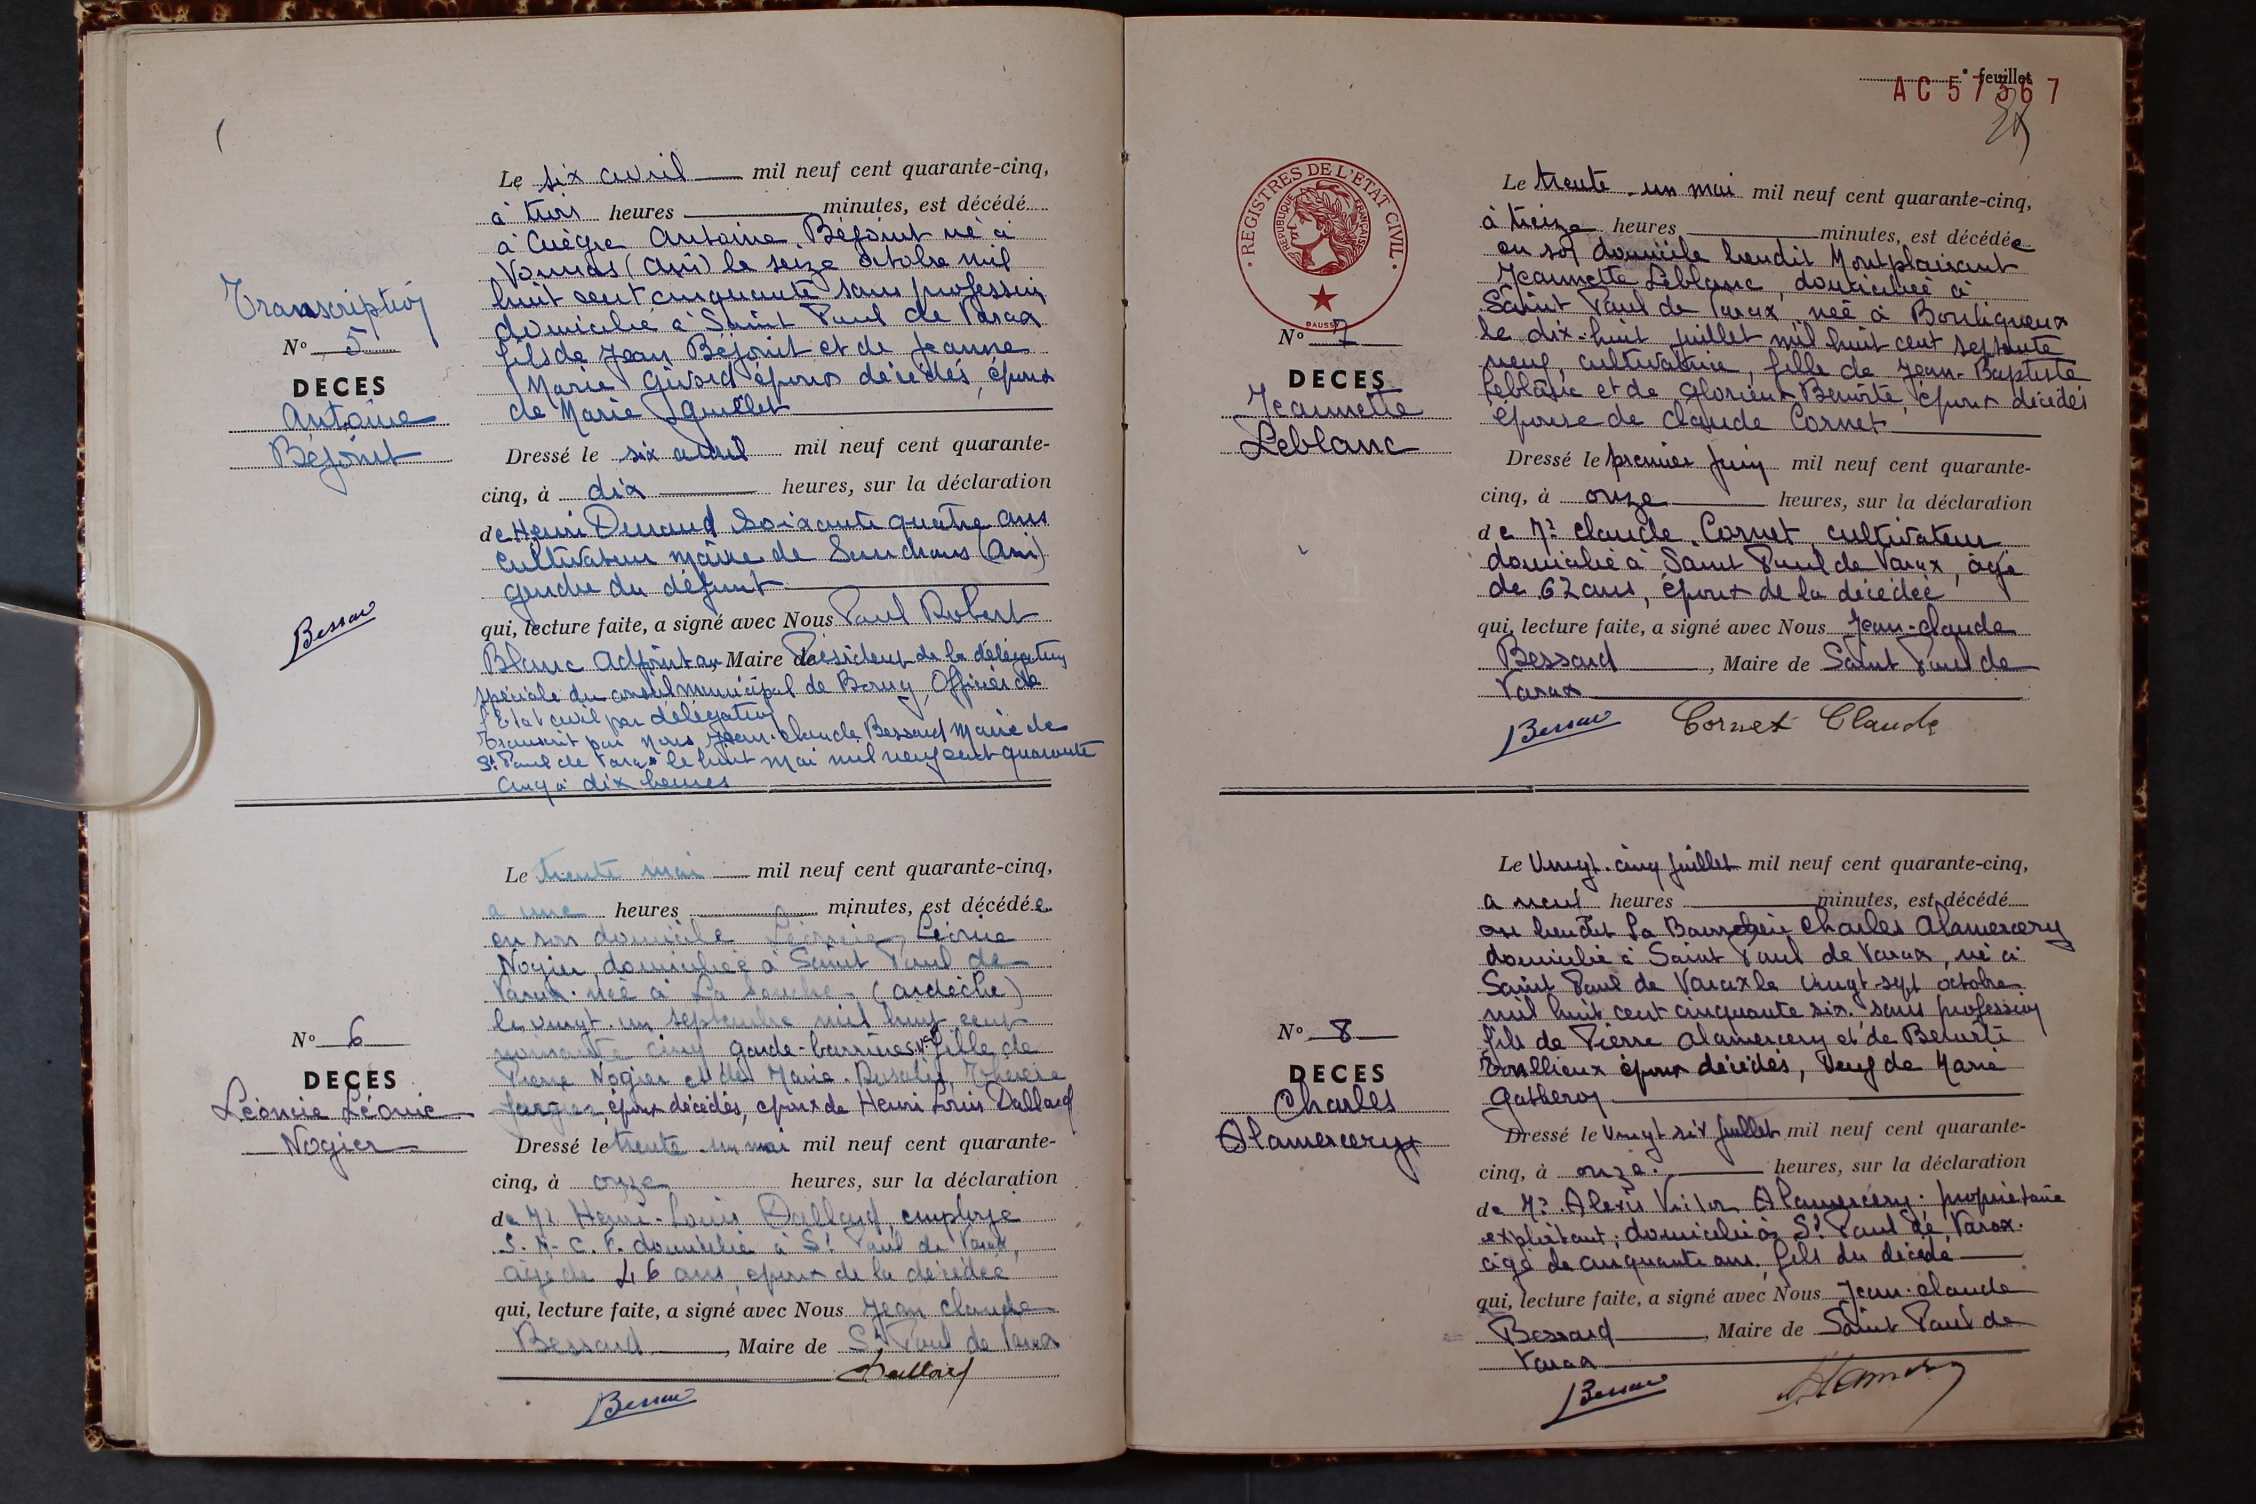 Transcription
N° 5
DECES
Antoine
Béjoint
Bessard
Le six avril mil neuf cent quarante-cinq,
à trois heures minutes, est décédé
à Antoine Béjoint né à
Vonnas (Ain) le seize octobre mil
huit cent cinquante sans profession
domicilié à Saint Paul de Varax
fils de Jean Béjoint et de Jeanne
Marie Givord époux décédés, époux
de Marie Guillet
Dressé le six avril mil neuf cent quarante-
cinq, à dix heures, sur la déclaration
de Henri Durand soixante quatre ans
cultivateur maire de Sandrans (Ain)
gendre du défunt
qui, lecture faite, a signé avec Nous Paul Robert
Blanc Adjoint au Maire de Président de la délégation
spéciale du conseil municipal de Bourg, Officier de
l'Etat civil par délégation
Transcrit par Nous Jean-Claude Bessard Maire de
St Paul de Varax le huit mai mil neuf cent quarante
cinq à dix heures
N° 6
DECES
Léoncie Léonie
Nogier
Le trente mai mil neuf cent quarante-cinq,
à une heures minutes, est décédée
en son domicile Léoncie Léonie
Nogier, domiciliée à Saint Paul de
Varax née à La Souche (Ardèche)
le vingt-un septembre mil huit cent
cinq garde-barrières fille de
Pierre Nogier et de Marie Rosalie Thérèse
époux décédés, épouse de Henri Louis Dallard
Dressé le trente-un mai mil neuf cent quarante-
cinq, à onze heures, sur la déclaration
de Mr Henri-Louis Dallard, employé
S.N.C.F. domicilié à St Paul de Varax,
âgé de 46 ans, époux de la décédée
qui, lecture faite, a signé avec Nous Jean Claude
Bessard, Maire de St Paul de Varax
Dallard
Bessard
AC 57367
° feuillet
REGISTRES DE L'ETAT CIVIL
REPUBLIQUE FRANÇAISE
DAUSSY
N° 7
DECES
Jeannette
Leblanc
Le trente-un mai mil neuf cent quarante-cinq,
à treize heures minutes, est décédée
en son domicile lieudit Montplaisant
Jeannette Leblanc, domiciliée à
Saint Paul de Varax née à Bouligneux
le dix-huit juillet mil huit cent septante
neuf, cultivatrice, fille de Jean-Baptiste
Leblanc et de Benoîte, époux décédés
épouse de Claude Cornet
Dressé le premier Juin mil neuf cent quarante-
cinq, à onze heures, sur la déclaration
de Mr Claude Cornet cultivateur
domicilié à Saint Paul de Varax, âgé
de 62 ans, époux de la décédée
qui, lecture faite, a signé avec Nous Jean-Claude
Bessard, Maire de Saint Paul de
Varax
Bessard Cornet Claude
N° 8
DECES
Charles
Alamercery
Le Vingt-cinq juillet mil neuf cent quarante-cinq,
à neuf heures minutes, est décédé
au lieudit La Charles Alamercery
domicilié à Saint Paul de Varax, né à
Saint Paul de Varax le vingt-sept octobre
mil huit cent cinquante six sans profession
fils de Pierre Alamercery et de Benoîte
époux décédés, Veuf de Marie
Dressé le Vingt six juillet mil neuf cent quarante-
cinq, à onze heures, sur la déclaration
de Mr Alexis Victor Alamercery, propriétaire
exploitant, domicilié à St Paul de Varax
âgé de cinquante ans, fils du décédé
qui, lecture faite, a signé avec Nous Jean-Claude
Bessard, Maire de Saint Paul de
Varax
Bessard